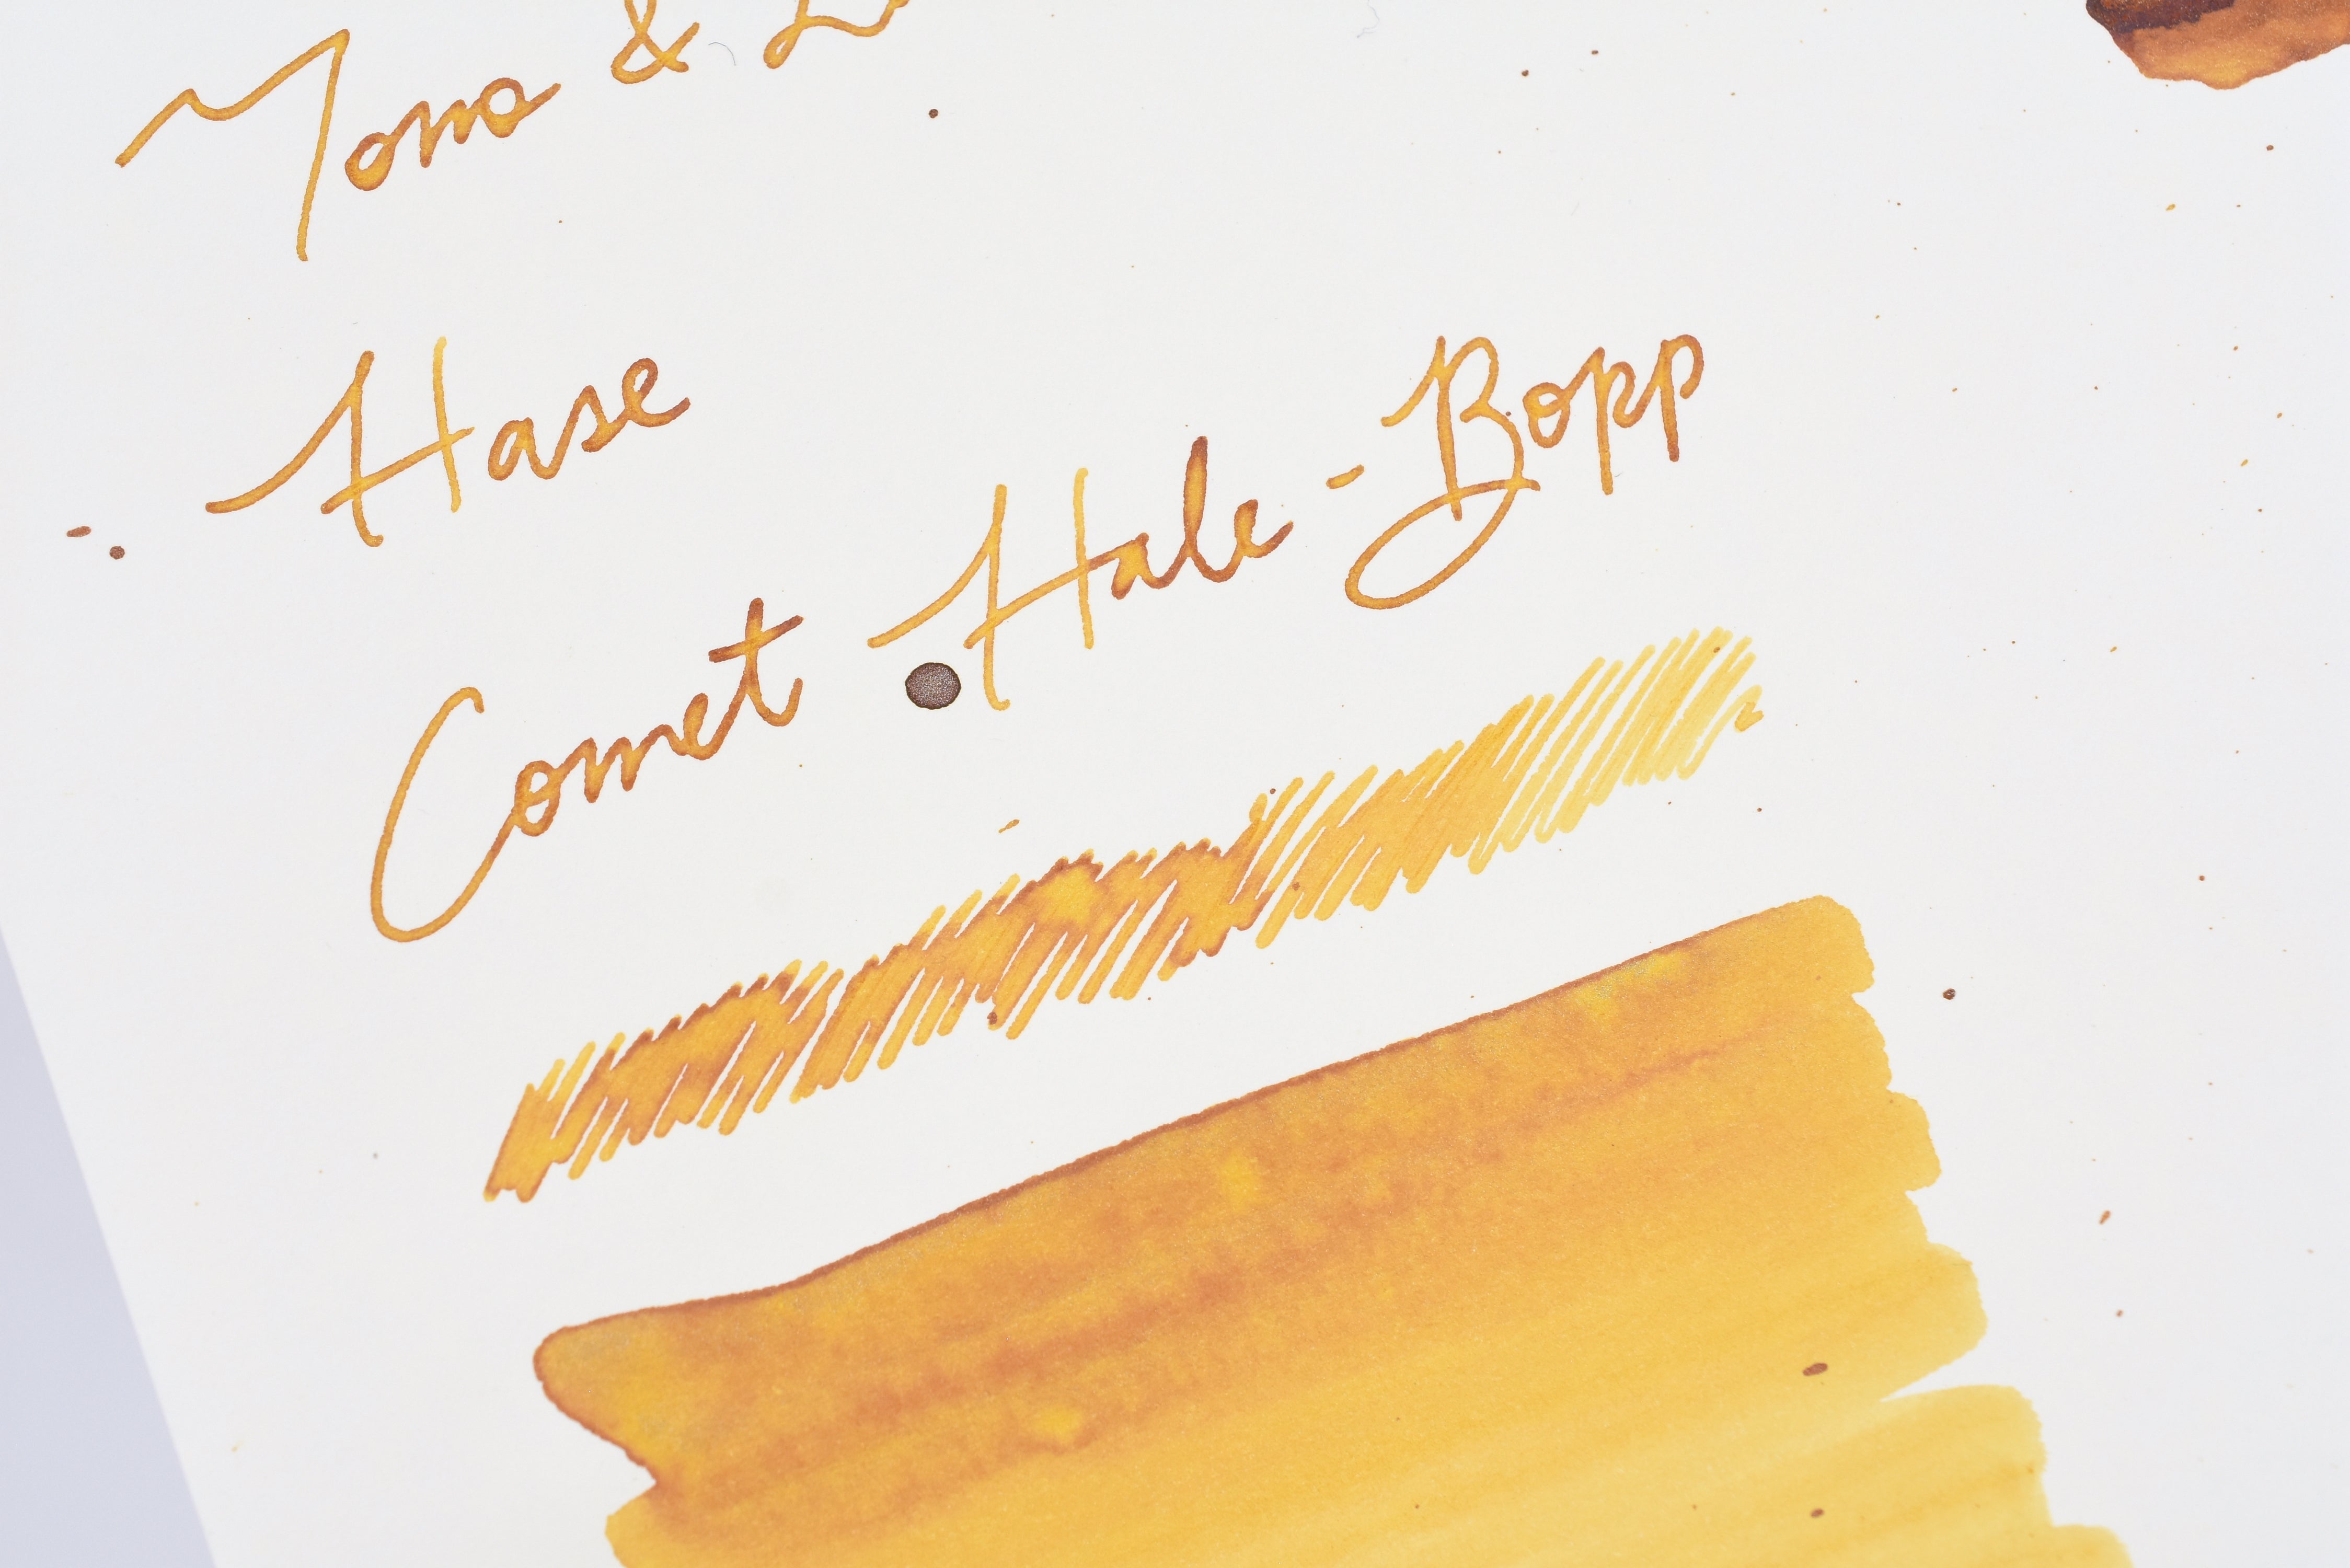 Tono &
Hase
Comet Hale-Bopp